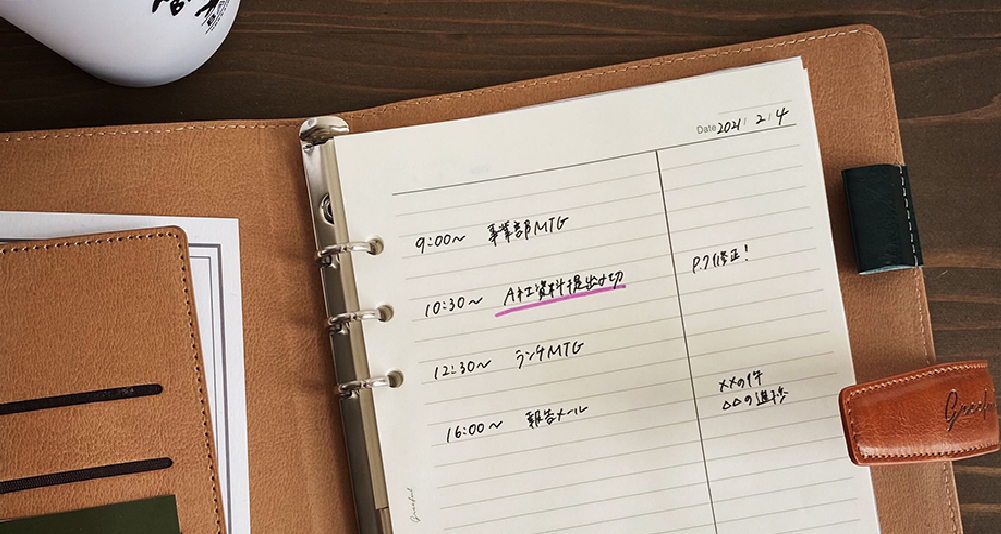 Date 2021 / 2 / 4
9:00〜 事業部MTG
10:30〜 A社資料提出〆切
P.7修正!
12:30〜 ランチMTG
××の件
△△の進捗
16:00〜 報告メール